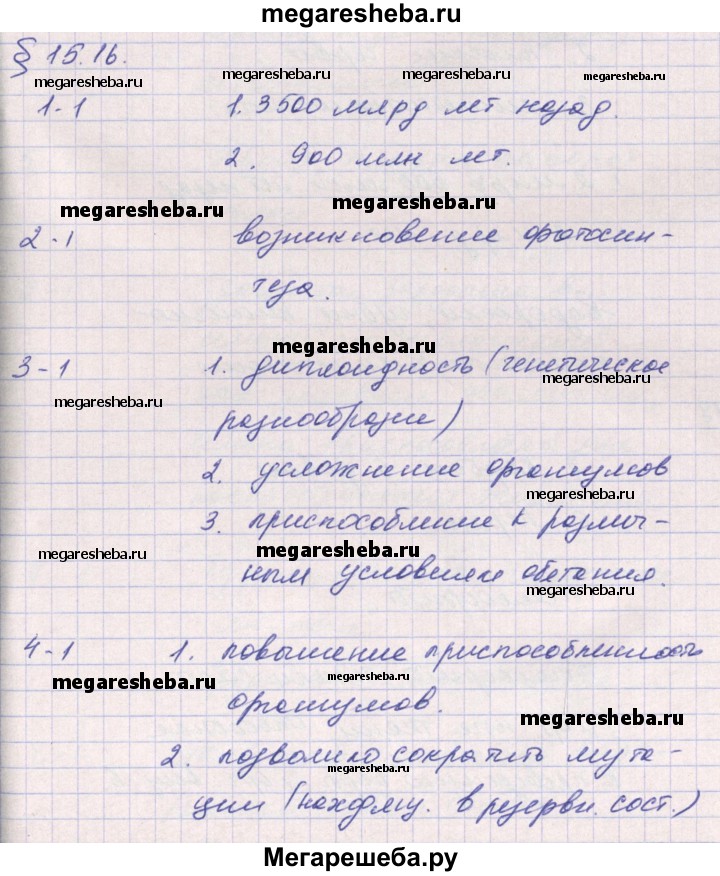 megaresheba.ru
§ 15.16.
megaresheba.ru megaresheba.ru megaresheba.ru megaresheba.ru
1-1 1. 3500 млрд лет назад.
2. 900 млн лет.
megaresheba.ru megaresheba.ru
2-1 возникновение фотосин-
теза.
megaresheba.ru
3-1 1. диплоидность (генетическое
megaresheba.ru megaresheba.ru
разнообразие)
2. усложнение организмов
megaresheba.ru
3. приспособление к различ-
megaresheba.ru megaresheba.ru
ным условиям обитания.
megaresheba.ru
4-1 1. повышение приспособленность
megaresheba.ru megaresheba.ru
организмов.
megaresheba.ru
2. позволило сократить мута-
megaresheba.ru megaresheba.ru
ции (находму. в резерви. сост.)
Мегарешеба.ру